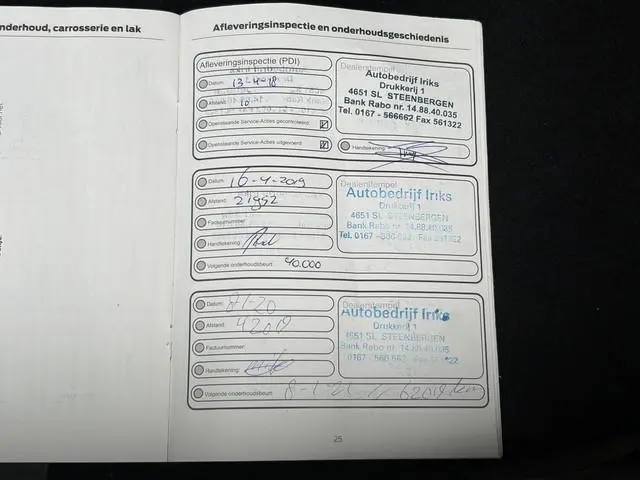 nderhoud, carrosserie en lak
Afleveringsinspectie en onderhoudsgeschiedenis
Afleveringsinspectie (PDI)
Datum: 13-4-18
Afstand: 10
Openstaande Service-Acties gecontroleerd:
Openstaande Service-Acties uitgevoerd:
Dealerstempel
Autobedrijf Iriks
Drukkerij 1
4651 SL STEENBERGEN
Bank Rabo nr. 14.88.40.035
Tel. 0167 - 566662 Fax 561322
Handtekening:
Datum: 16-4-2019
Afstand: 21952
Factuurnummer:
Handtekening:
Volgende onderhoudsbeurt: 40.000
Dealerstempel
Autobedrijf Iriks
Drukkerij 1
4651 SL STEENBERGEN
Bank Rabo nr. 14.88.40.035
Tel. 0167 - Fax 561322
Datum:
Afstand: 42019
Factuurnummer:
Handtekening:
Volgende onderhoudsbeurt: 8-1-21 62019 km
Dealerstempel
Autobedrijf Iriks
Drukkerij 1
4651 SL STEENBERGEN
Bank Rabo nr. 14.88.40.035
0167 - 566 662
25